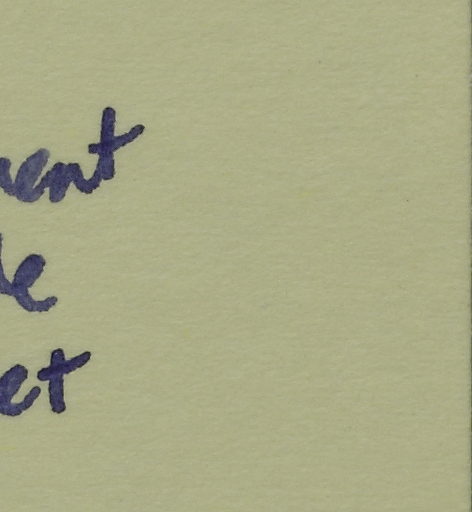 ent
le
et